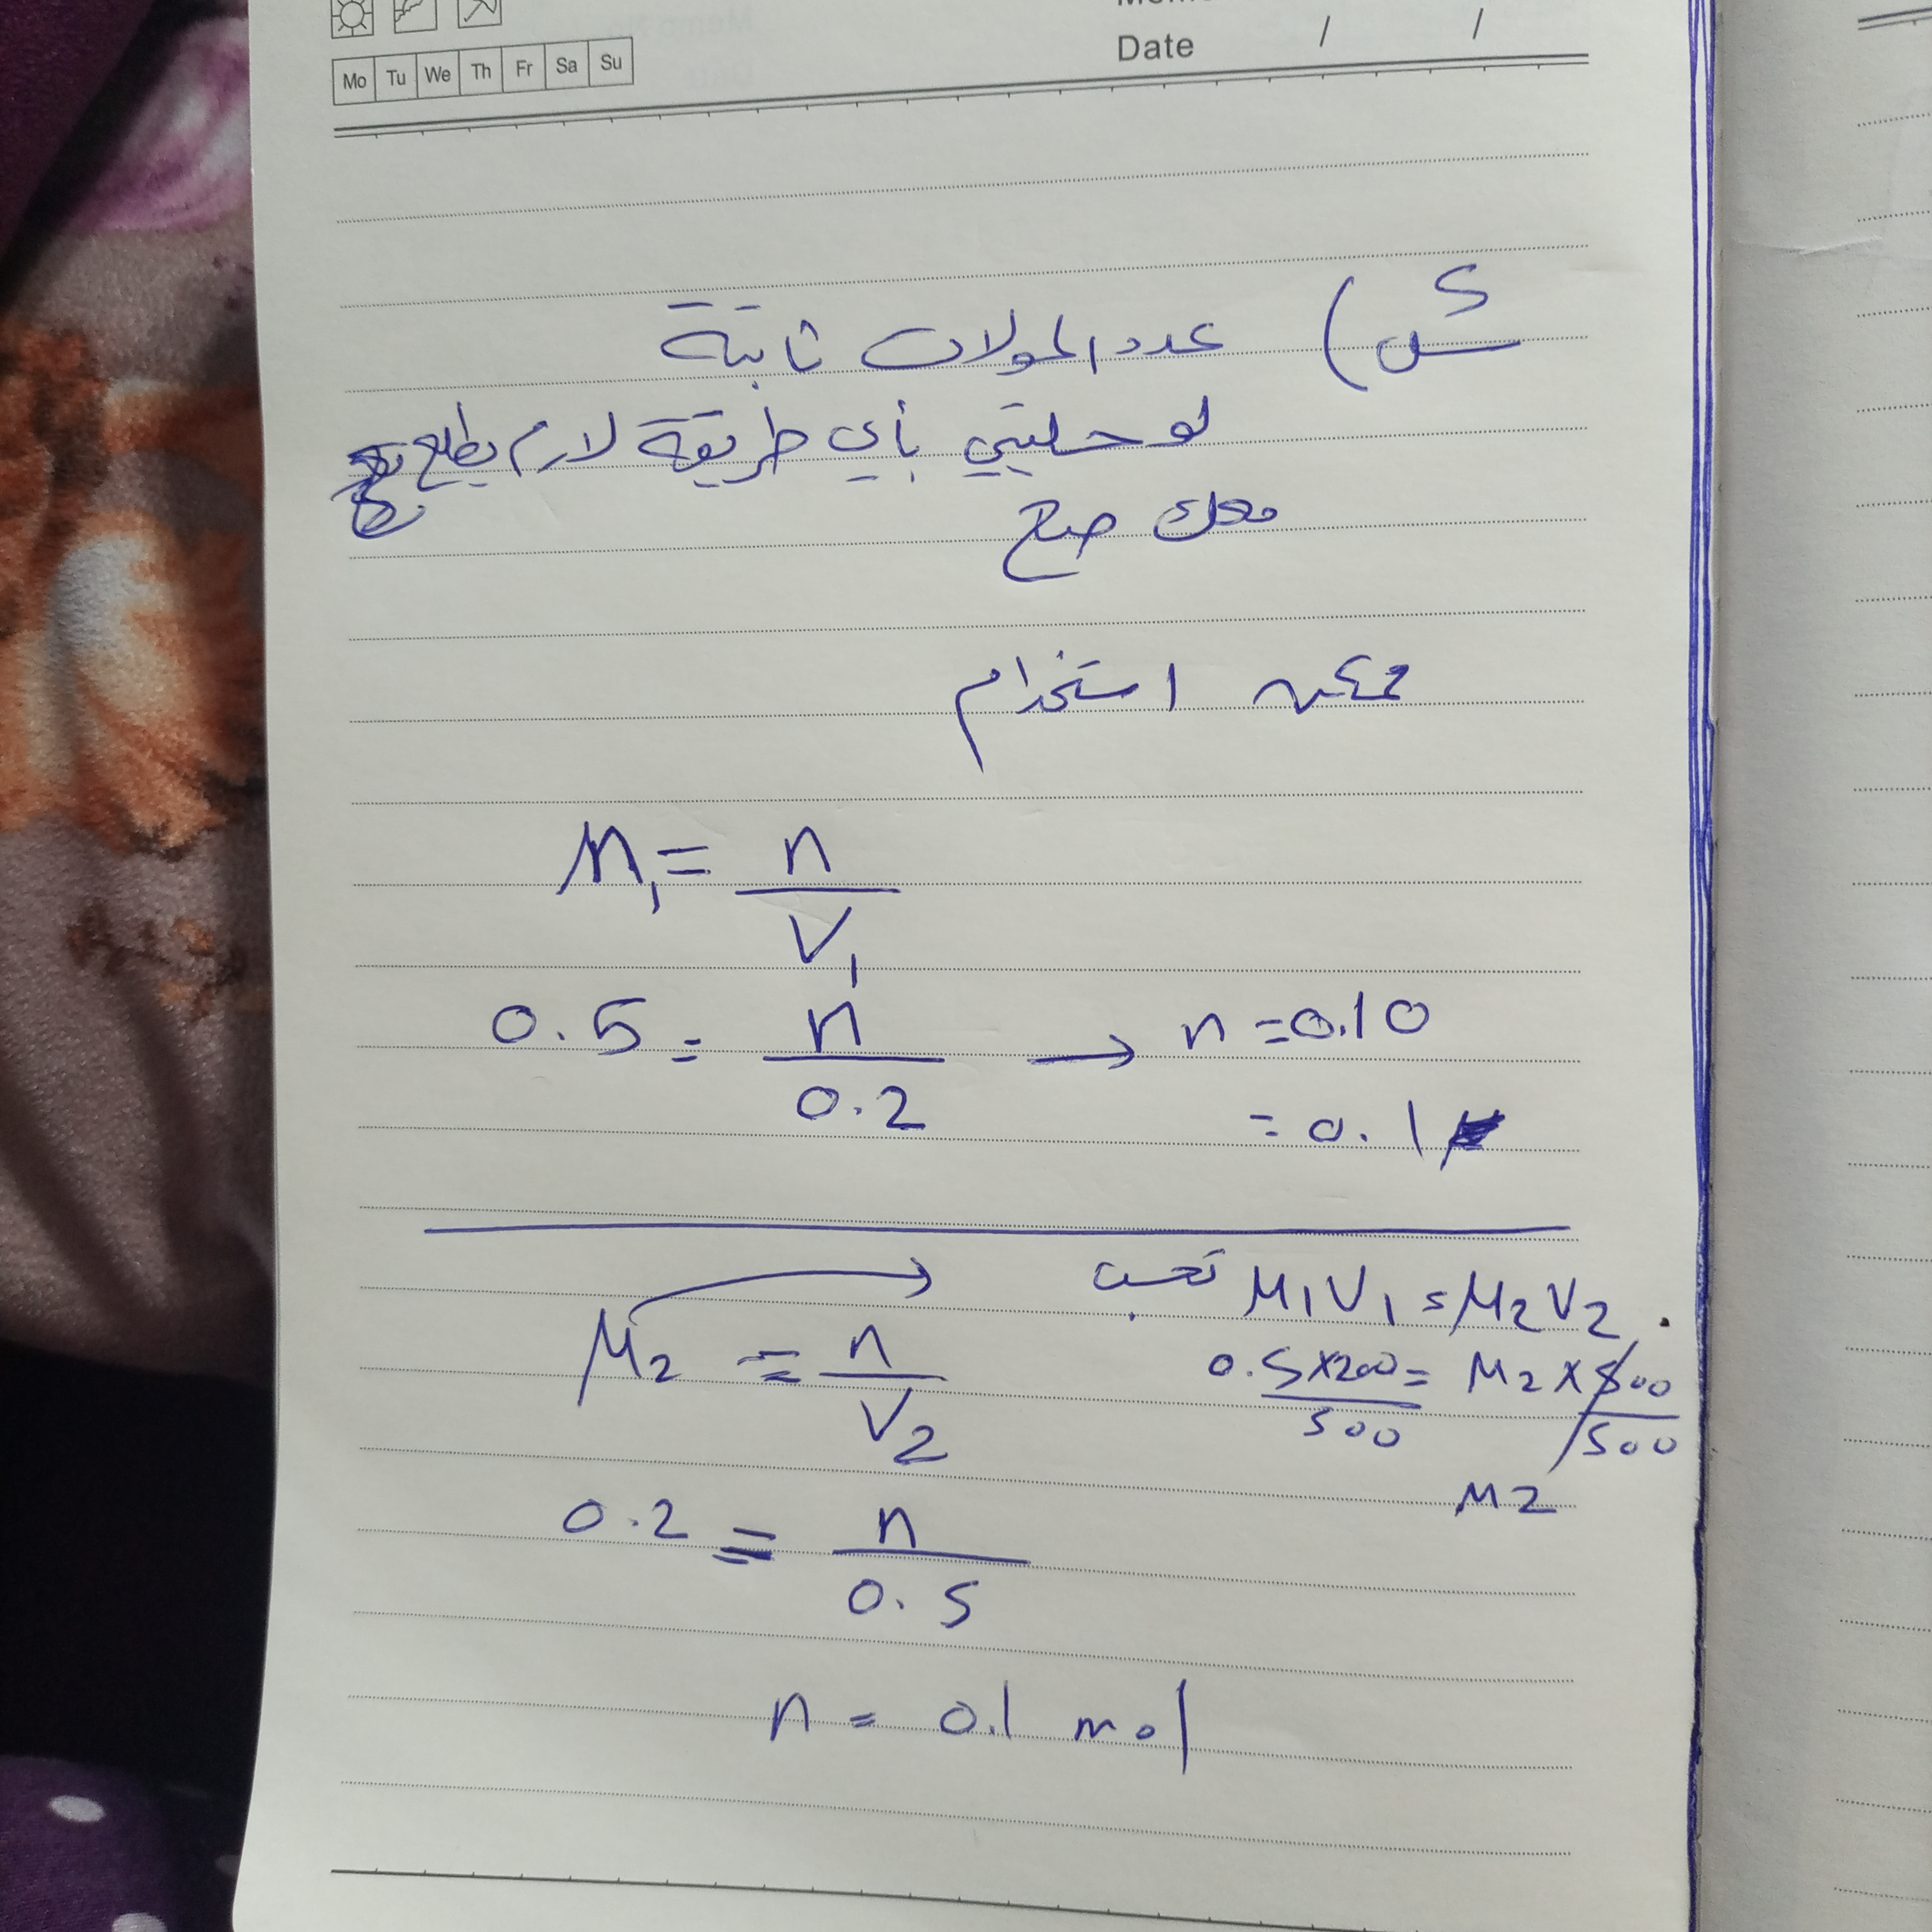 Mo Tu We Th Fr Sa Su
Date / /
عدد المولات ثابتة
لو حليتي بأي طريقة لازم يطلع
معك صح
ممكن استخدام
M₁ = n / V₁
0.5 = n / 0.2 → n = 0.10
= 0.1
M₂ = n / V₂
نحسب M₁V₁ = M₂V₂
0.5×200 / 500 = M₂×500 / 500
M₂
0.2 = n / 0.5
n = 0.1 mol